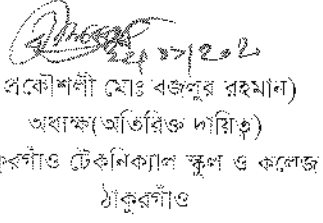 ২২/১১/২০২
প্রকৌশলী মোঃ বজলুর রহমান)
অধ্যক্ষ(অতিরিক্ত দায়িত্ব)
কুরগাঁও টেকনিক্যাল স্কুল ও কলেজ
ঠাকুরগাঁও